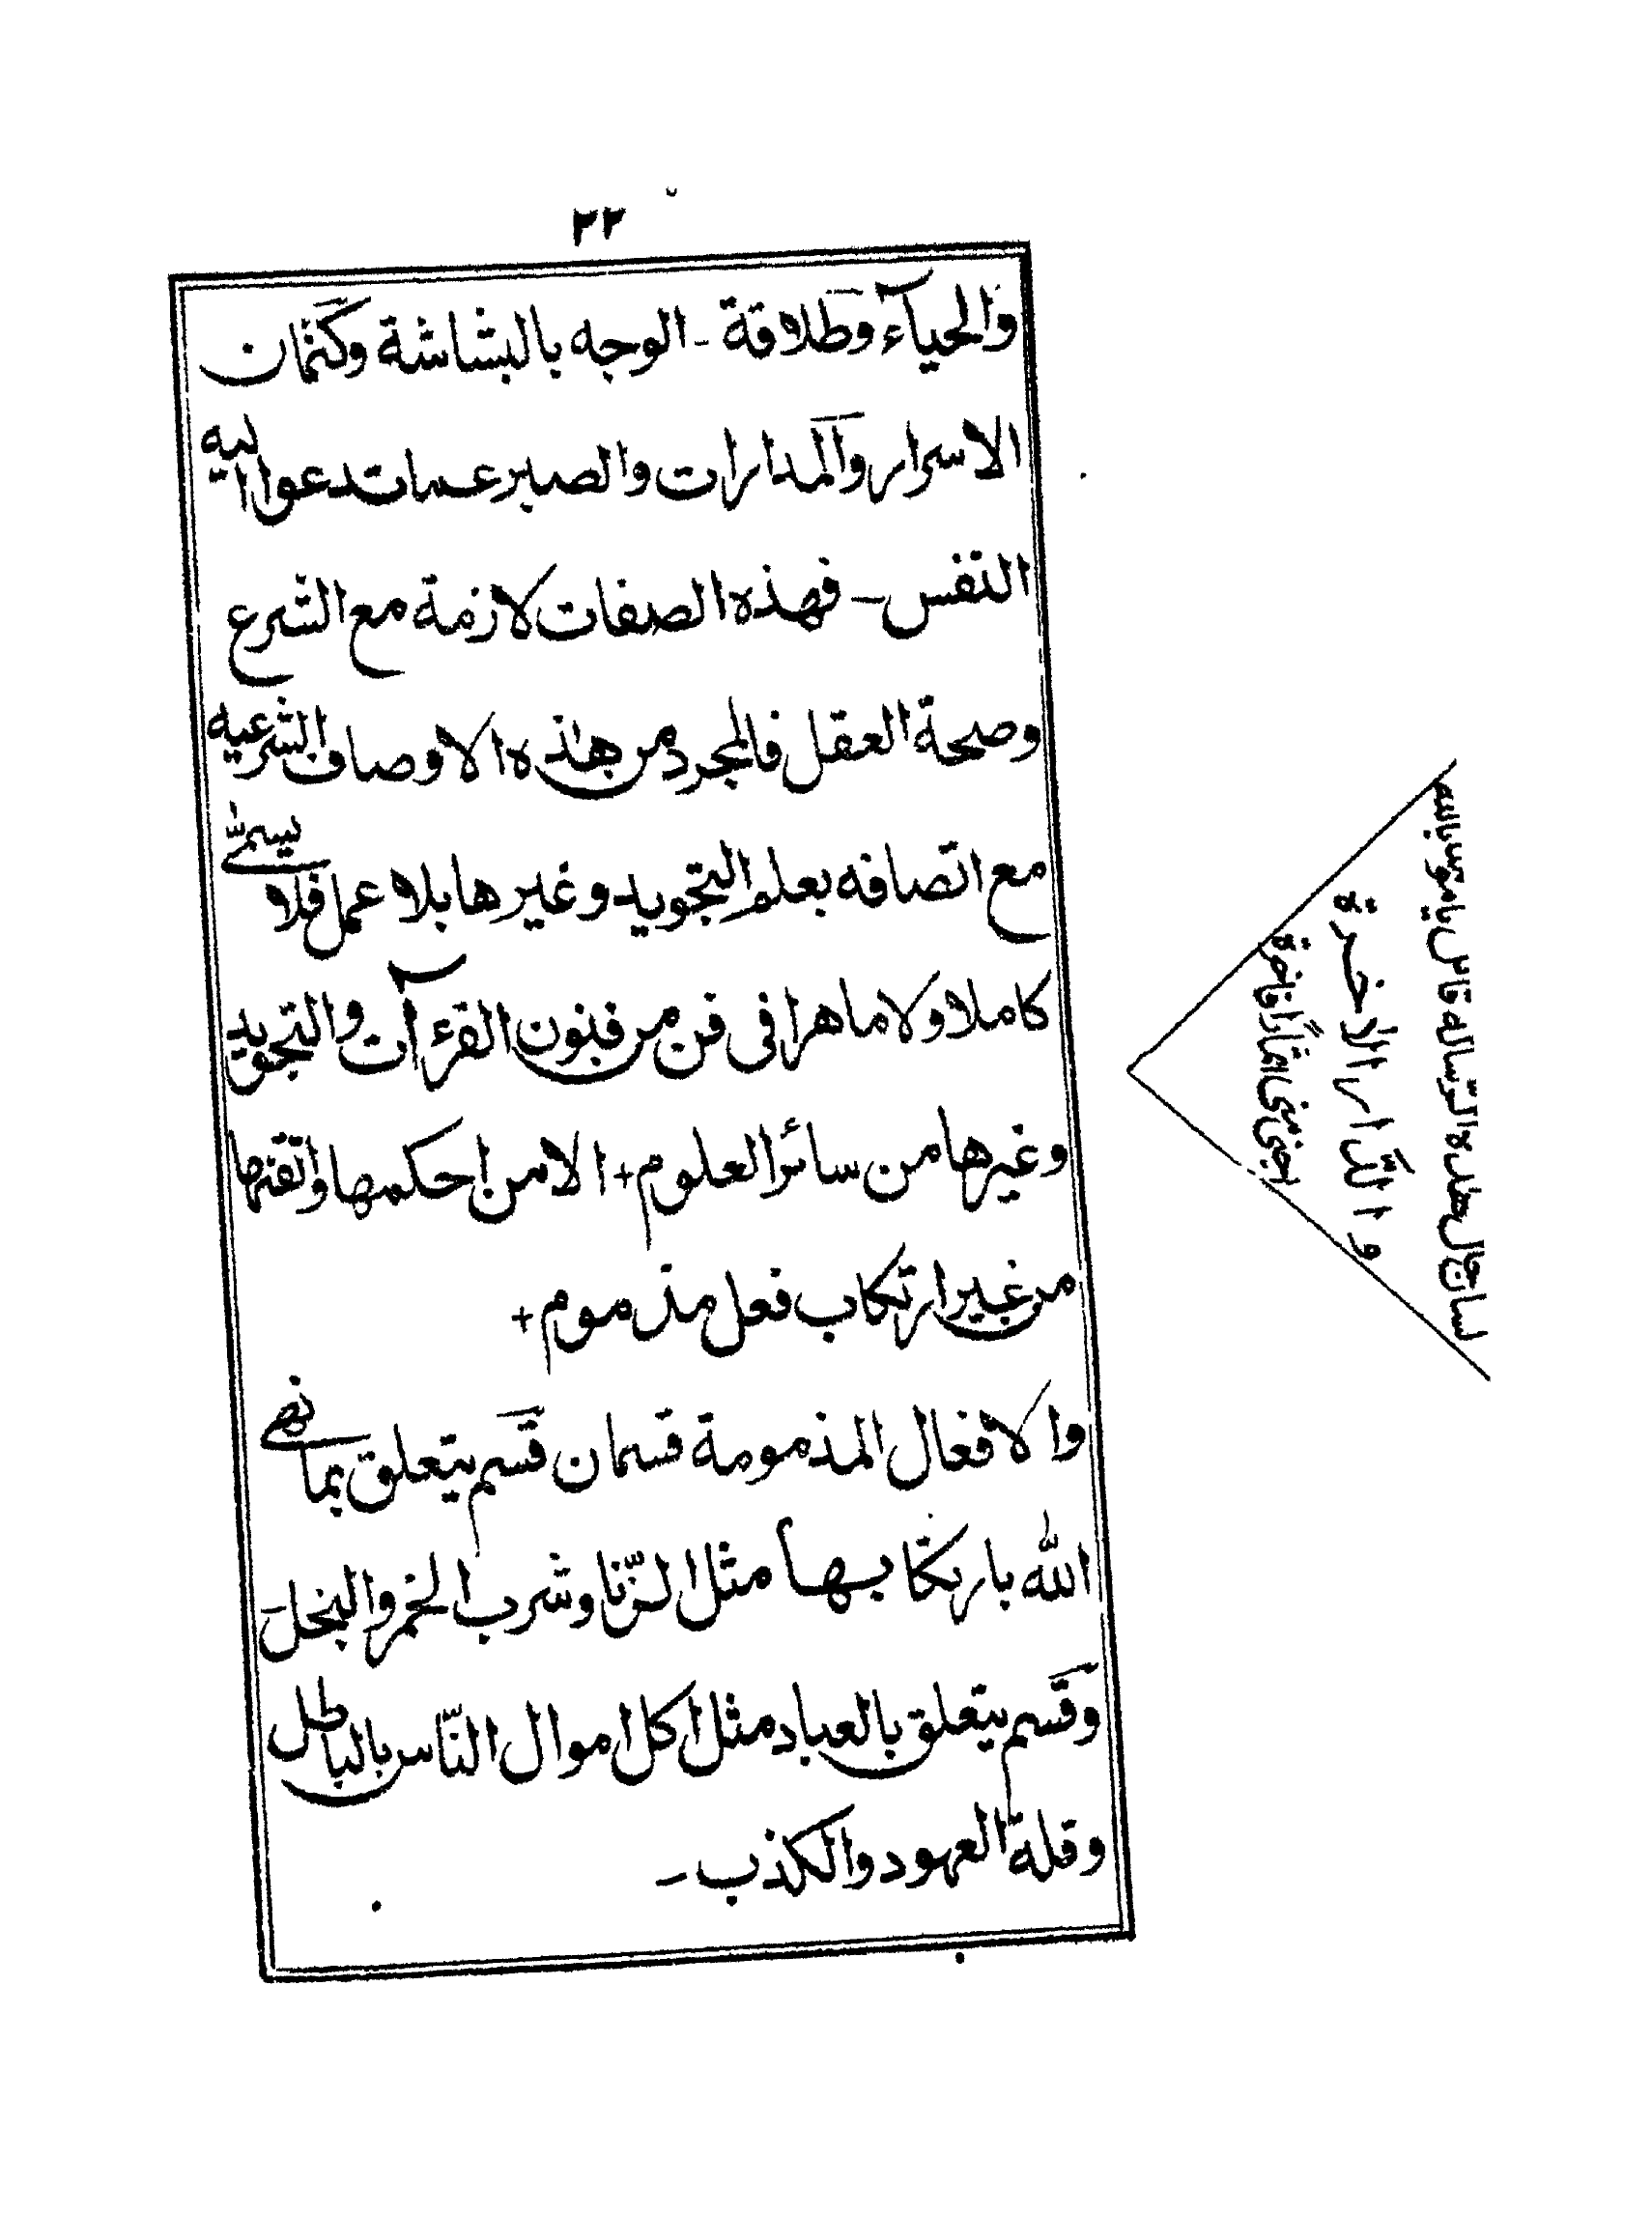 ٢٢
والحيآء وطلاقة - الوجه بالبشاشة وكتمان
الاسرار والمدارات والصبر عما تدعوا اليه
النفس - فهذه الصفات لازمة مع الشرع
وصحة العقل فالمجرد من هذه الاوصاف الشرعيه
مع اتصافه بعلم التجويد وغيرها بلا عمل فلا يسمّى
كاملا ولا ماهرا فى فن من فنون القرءآت والتجويد
وغيرها من سائر العلوم + الا من احكمها واتقنها
من غير ارتكاب فعل مذموم +
والافعال المذمومة قسمان قسم يتعلق بما نهى
الله بارتكابها مثل الزّنا وشرب الخمر والبخل
وقسم يتعلق بالعباد مثل اكل اموال النّاس بالباطل
وقلة العهود والكذب -
هذه الرّساله
والدّار الأخرة